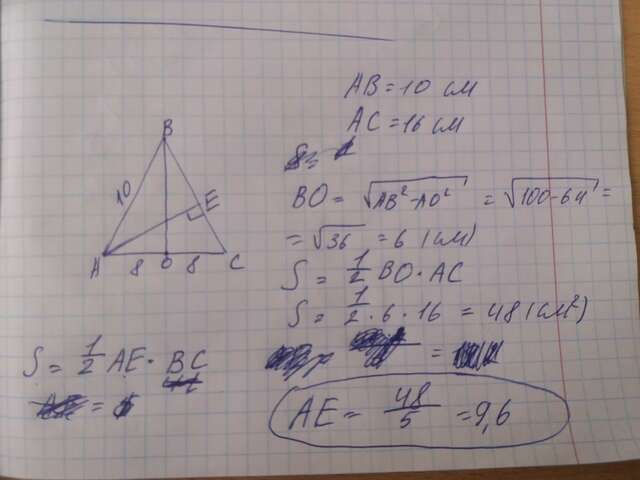 AB = 10 см
AC = 16 см
BO = √AB² - AO² = √100 - 64 =
= √36 = 6 (см)
S = 1/2 BO · AC
S = 1/2 · 6 · 16 = 48 (см²)
AE = 48/5 = 9,6
B
10
A 8 O 8 C
E
S = 1/2 AE · BC